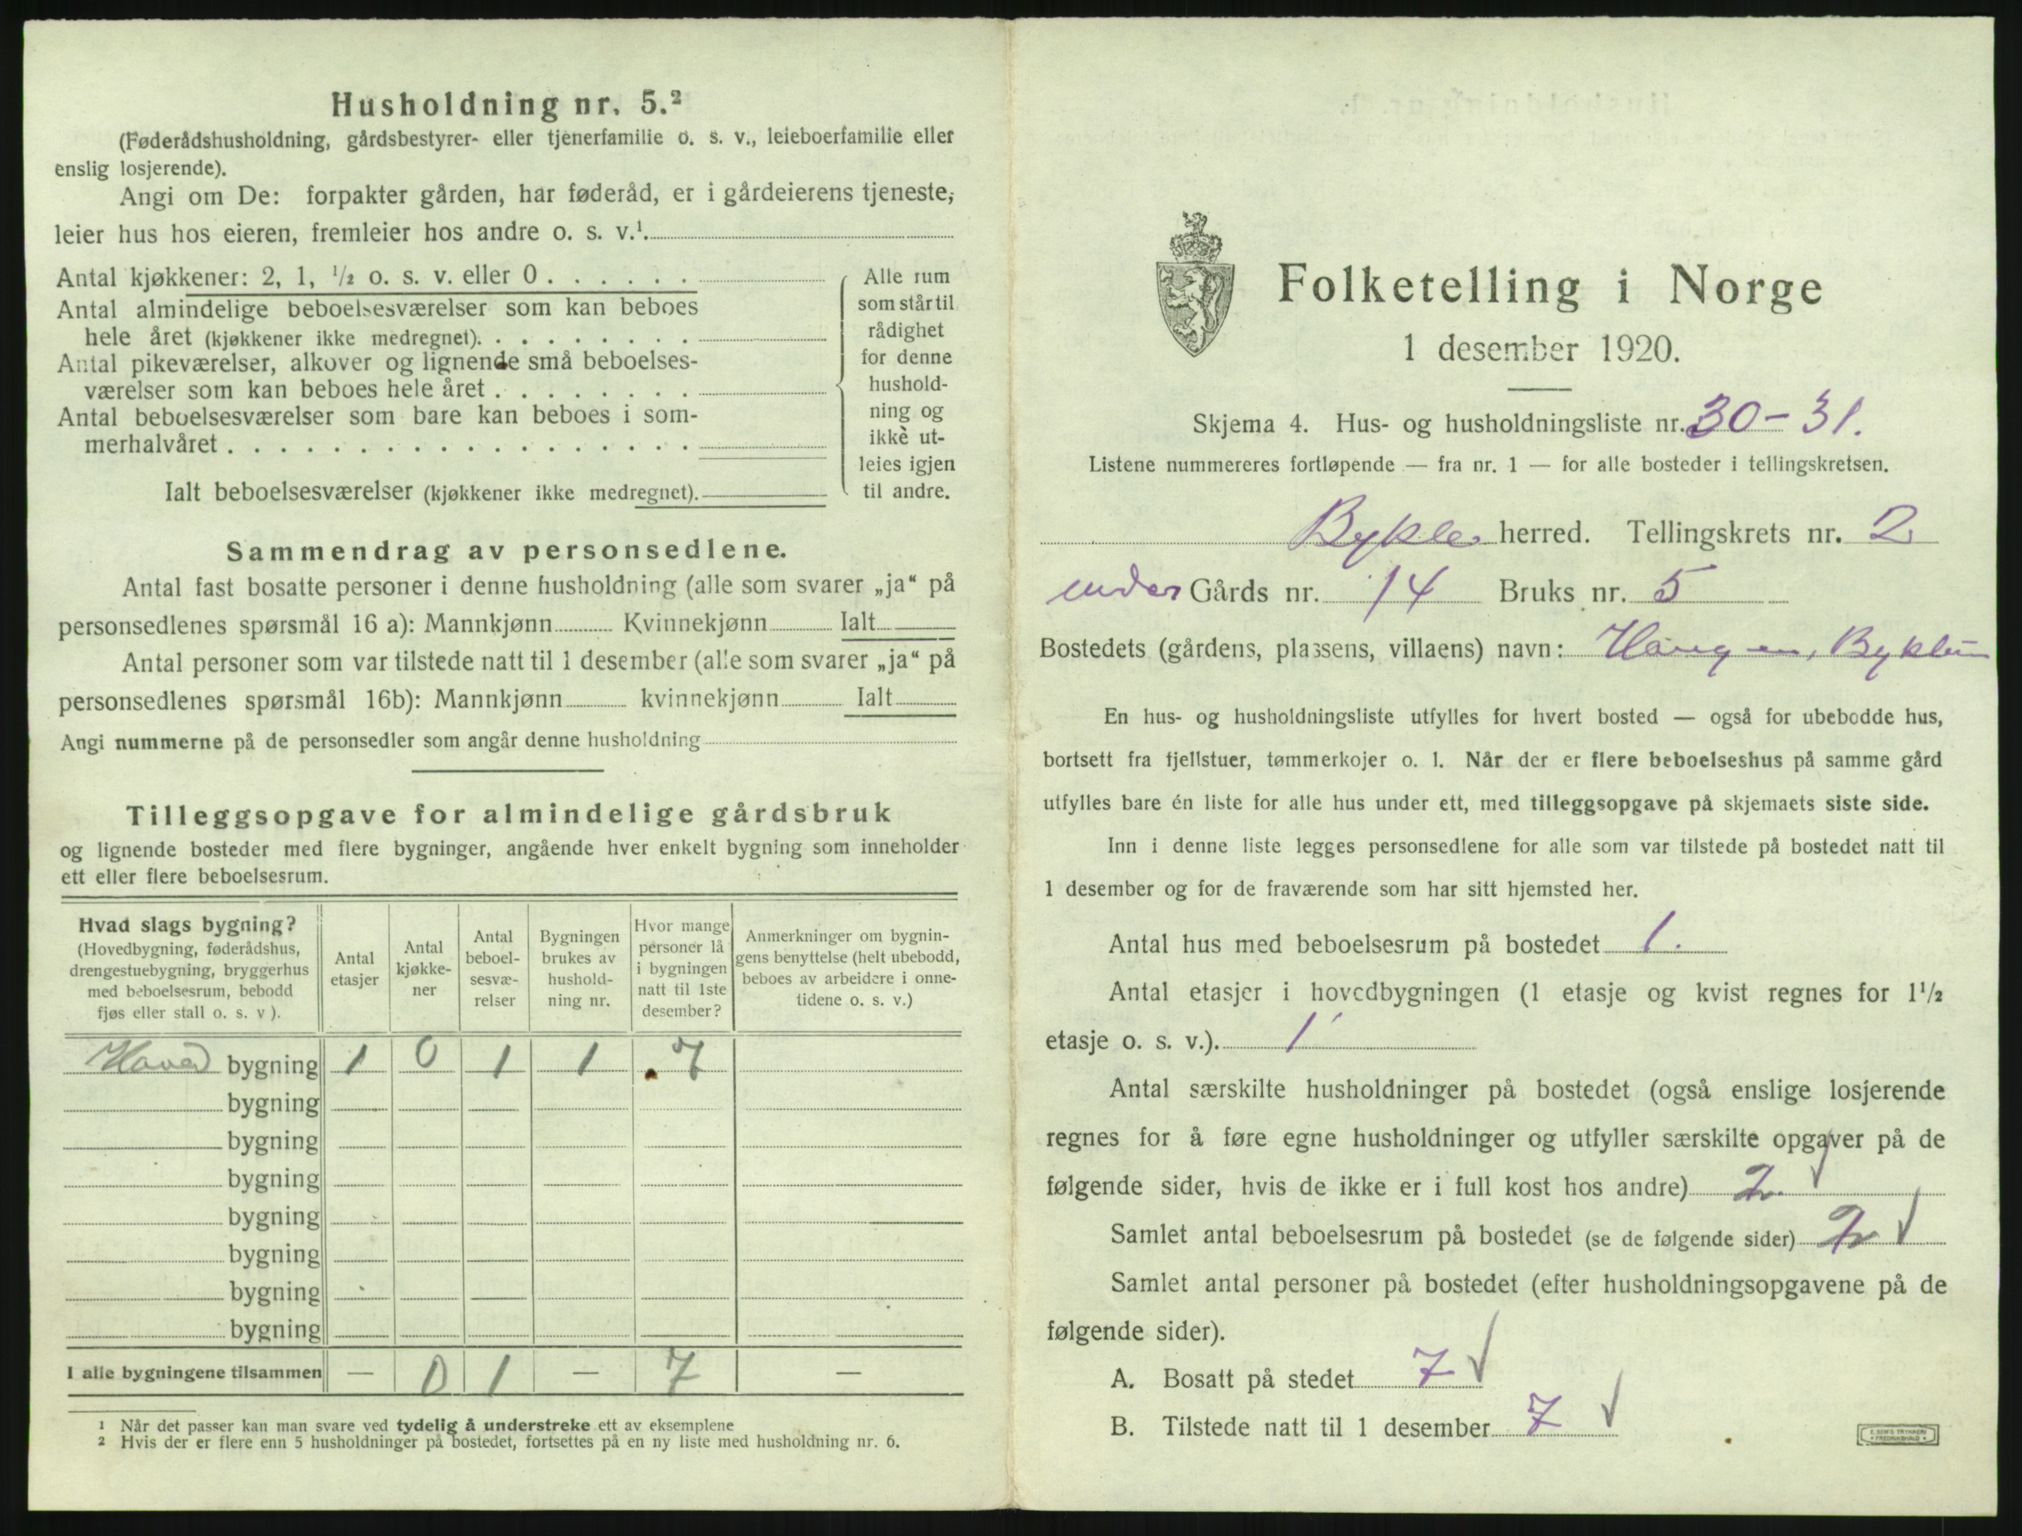 Husholdning nr. 5.²
(Føderådshusholdning, gårdsbestyrer- eller tjenerfamilie o. s. v., leieboerfamilie eller
enslig losjerende).
Angi om De: forpakter gården, har føderåd, er i gårdeierens tjeneste,
leier hus hos eieren, fremleier hos andre o. s. v.¹
Antal kjøkkener: 2, 1, ½ o. s. v. eller 0 . . . . . .
Antal almindelige beboelsesværelser som kan beboes
hele året (kjøkkener ikke medregnet). . . . . . . . .
Antal pikeværelser, alkover og lignende små beboelses-
værelser som kan beboes hele året . . . . . . . .
Antal beboelsesværelser som bare kan beboes i som-
merhalvåret . . . . . . . . . . . . . . . . . .
Ialt beboelsesværelser (kjøkkener ikke medregnet).
Alle rum
som står til
rådighet
for denne
hushold-
ning og
ikkè ut-
leies igjen
til andre.
Sammendrag av personsedlene.
Antal fast bosatte personer i denne husholdning (alle som svarer „ja“ på
personsedlenes spørsmål 16 a): Mannkjønn Kvinnekjønn Ialt
Antal personer som var tilstede natt til 1 desember (alle som svarer „ja“ på
personsedlenes spørsmål 16b): Mannkjønn kvinnekjønn Ialt
Angi nummerne på de personsedler som angår denne husholdning
Tilleggsopgave for almindelige gårdsbruk
og lignende bosteder med flere bygninger, angående hver enkelt bygning som inneholder
ett eller flere beboelsesrum.
Hvad slags bygning?
(Hovedbygning, føderådshus,
drengestuebygning, bryggerhus
med beboelsesrum, bebodd
fjøs eller stall o. s. v ).
Antal
etasjer
Antal
kjøkke-
ner
Antal
beboel-
sesvæ-
relser
Bygningen
brukes av
hushold-
ning nr.
Hvor mange
personer lå
i bygningen
natt til 1ste
desember?
Anmerkninger om bygnin-
gens benyttelse (helt ubebodd,
beboes av arbeidere i onne-
tidene o. s. v.)
Hoved bygning 1 0 1 1 7
bygning
bygning
bygning
bygning
bygning
bygning
bygning
I alle bygningene tilsammen — 0 1 — 7 —
¹ Når det passer kan man svare ved tydelig å understreke ett av eksemplene
² Hvis der er flere enn 5 husholdninger på bostedet, fortsettes på en ny liste med husholdning nr. 6.
Folketelling i Norge
1 desember 1920.
Skjema 4. Hus- og husholdningsliste nr. 30-31.
Listene nummereres fortløpende — fra nr. 1 — for alle bosteder i tellingskretsen.
Bykle herred. Tellingskrets nr. 2
under Gårds nr. 14 Bruks nr. 5
Bostedets (gårdens, plassens, villaens) navn: Haugen, Byklum
En hus- og husholdningsliste utfylles for hvert bosted — også for ubebodde hus,
bortsett fra fjellstuer, tømmerkojer o. l. Når der er flere beboelseshus på samme gård
utfylles bare én liste for alle hus under ett, med tilleggsopgave på skjemaets siste side.
Inn i denne liste legges personsedlene for alle som var tilstede på bostedet natt til
1 desember og for de fraværende som har sitt hjemsted her.
Antal hus med beboelsesrum på bostedet 1.
Antal etasjer i hovedbygningen (1 etasje og kvist regnes for 1½
etasje o. s. v.). 1
Antal særskilte husholdninger på bostedet (også enslige losjerende
regnes for å føre egne husholdninger og utfyller særskilte opgaver på de
følgende sider, hvis de ikke er i full kost hos andre) 2. √
Samlet antal beboelsesrum på bostedet (se de følgende sider) 2 √
Samlet antal personer på bostedet (efter husholdningsopgavene på de
følgende sider).
A. Bosatt på stedet 7 √
B. Tilstede natt til 1 desember 7 √